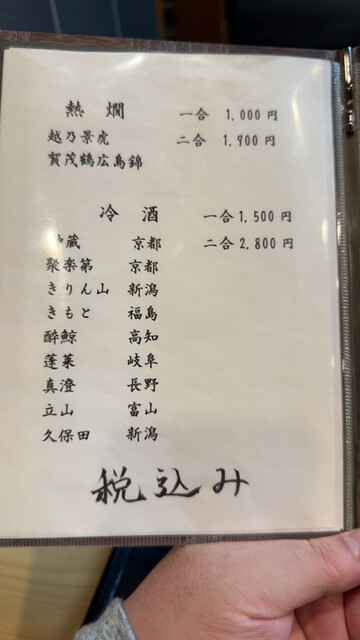 熱燗 一合 1,000円
越乃景虎 二合 1,900円
賀茂鶴広島錦
冷酒 一合 1,500円
蔵 京都 二合 2,800円
聚楽第 京都
きりん山 新潟
きもと 福島
酔鯨 高知
蓬莱 岐阜
真澄 長野
立山 富山
久保田 新潟
税込み